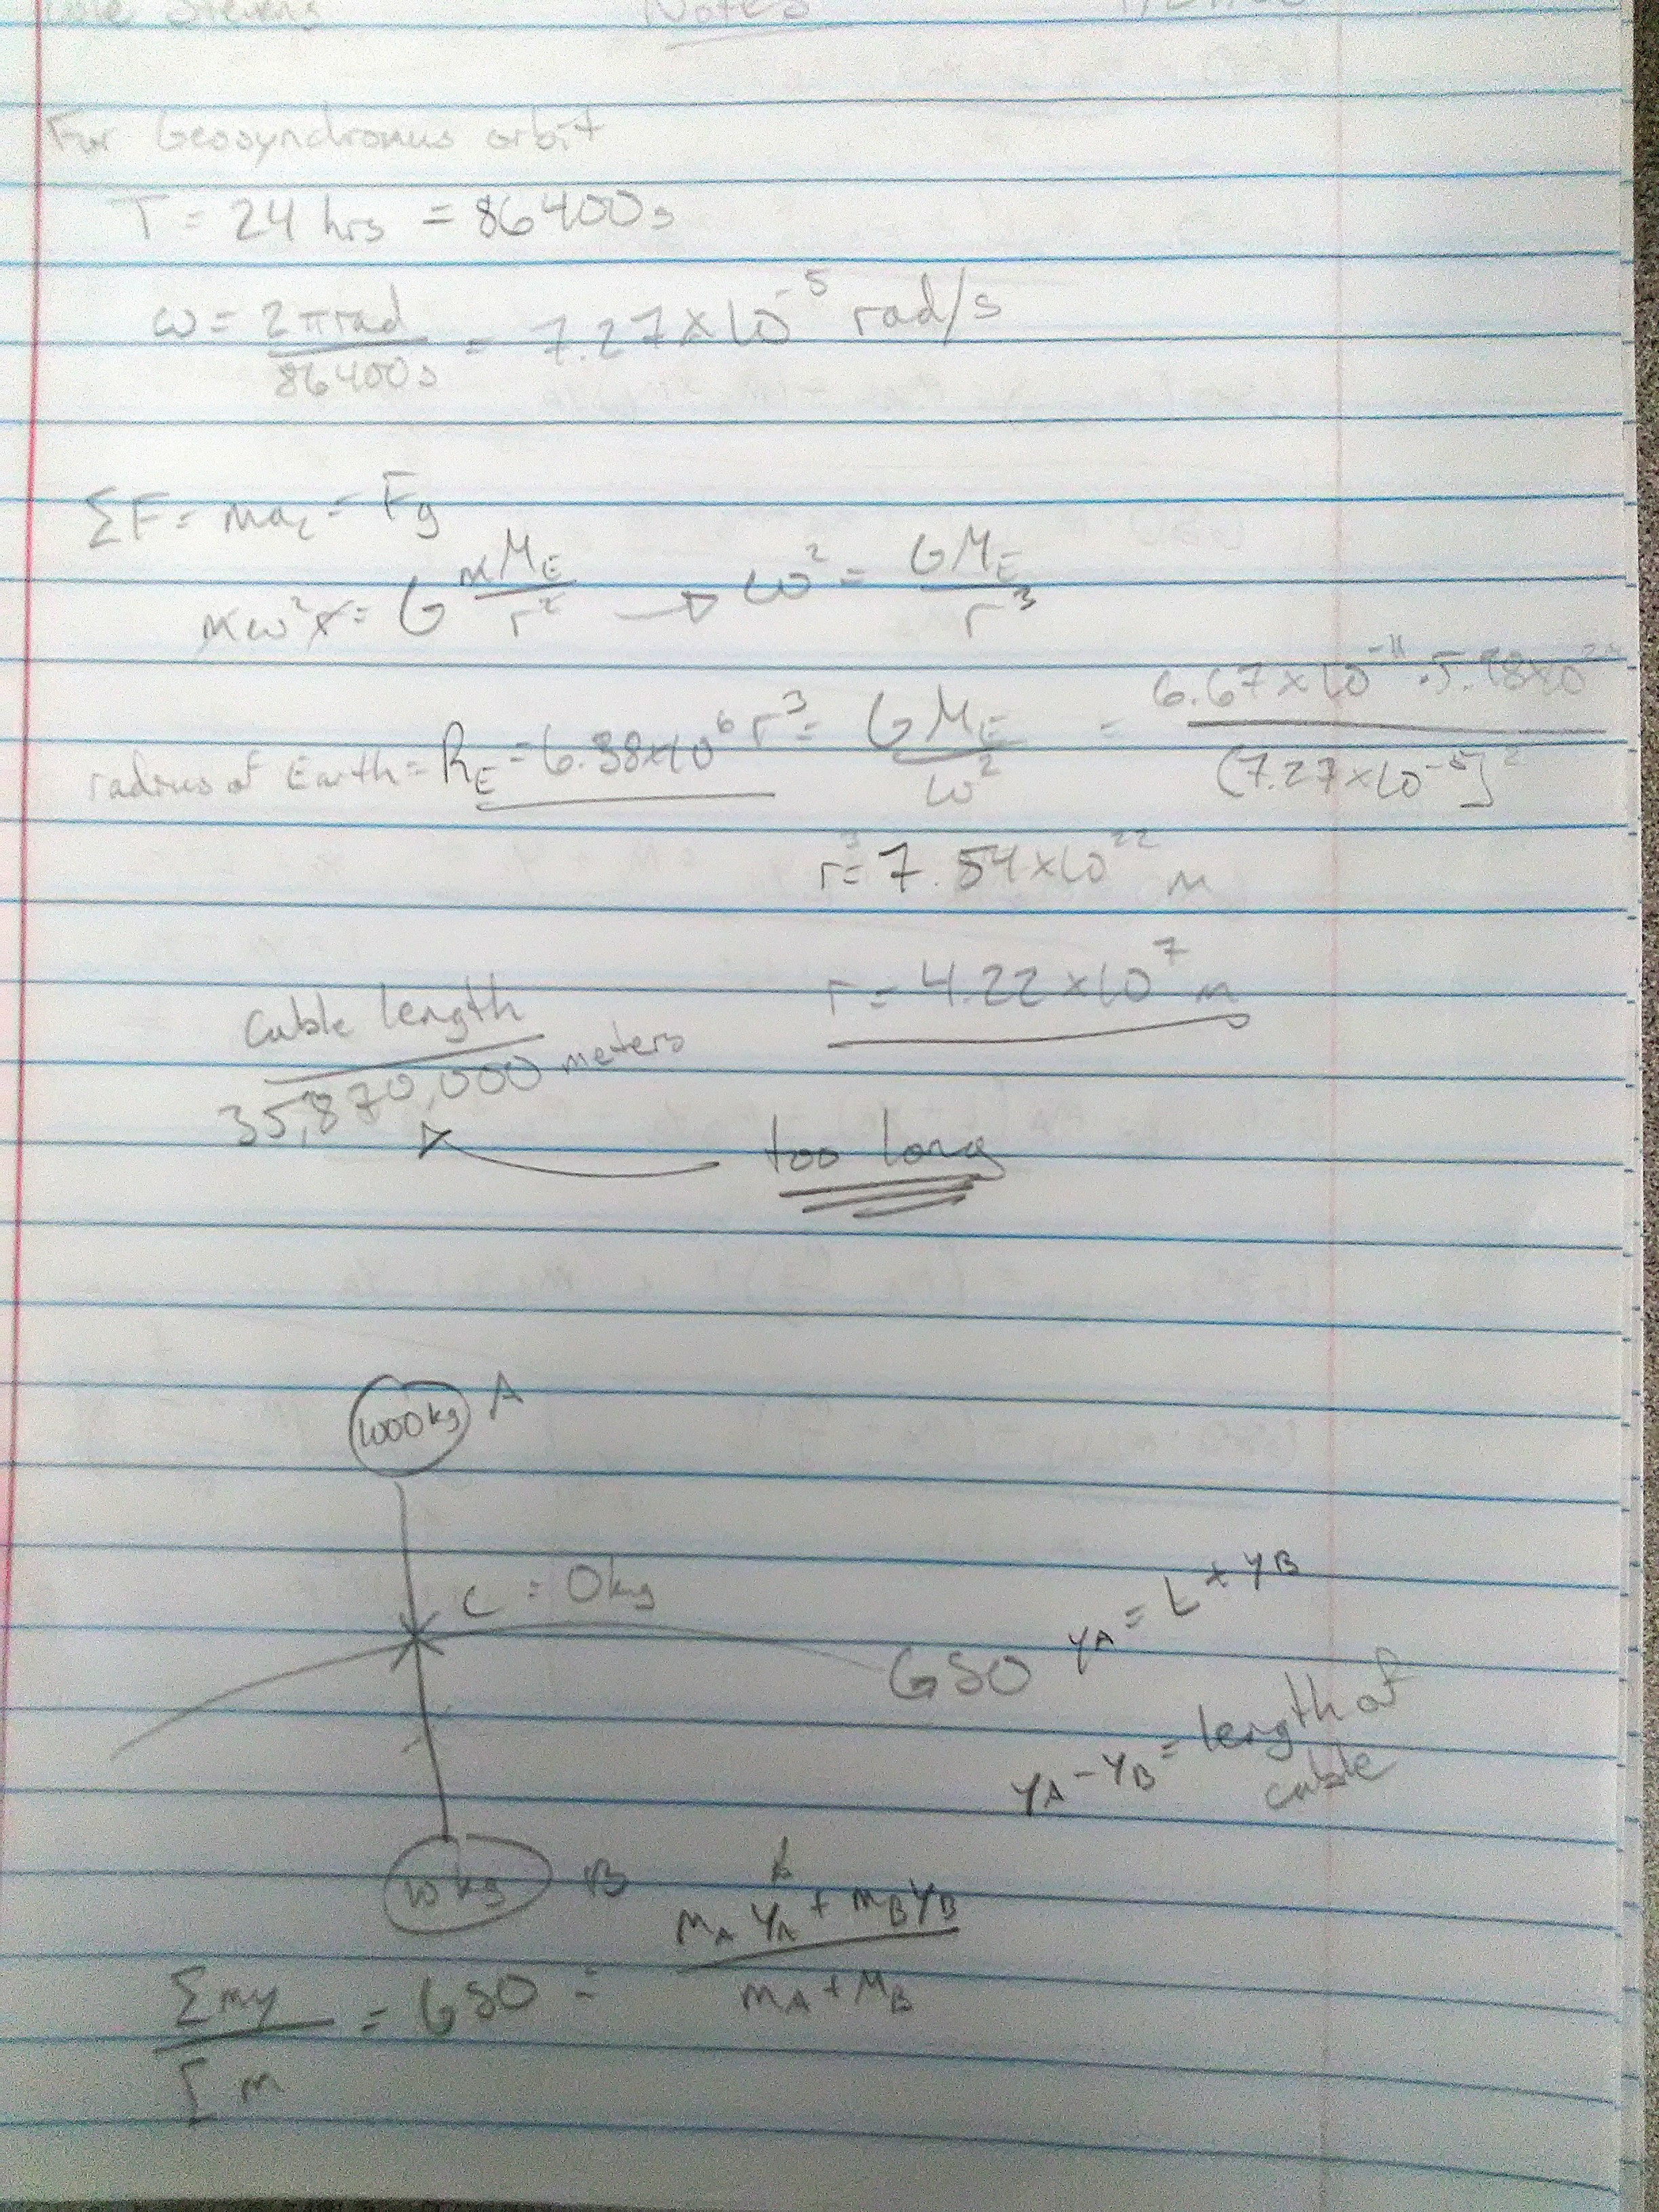 Stevens Notes
For Geosyndronus orbit
T = 24 hrs = 86400s
ω = 2πrad / 86400s = 7.27×10⁻⁵ rad/s
ΣF = ma꜀ = Fg
mω²r = G mM_E / r² → ω² = GM_E / r³
radius of Earth = R_E = 6.38×10⁶ r³ = GM_E / ω² = 6.67×10⁻¹¹ · 5.98×10²⁴ / (7.27×10⁻⁵)²
r³ = 7.54×10²² m
r = 4.22×10⁷ m
Cable length
35,870,000 meters
too long
1000kg A
C = 0kg
GSO
y_A = L + y_B
y_A - y_B = length of
cable
10 kg B
Σmy / Σm = GSO = m_A y_A + m_B y_B / m_A + m_B